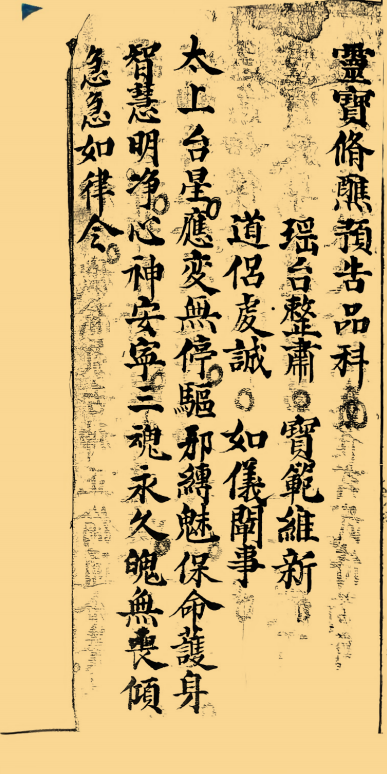 靈寶脩醮預告品科
瑶台整肅 寶範維新
道侶虔誠 如儀闡事
太上台星應变無停驅邪縛魅保命護身
智慧明净心神安寜三魂永久魄無喪傾
急急如律令